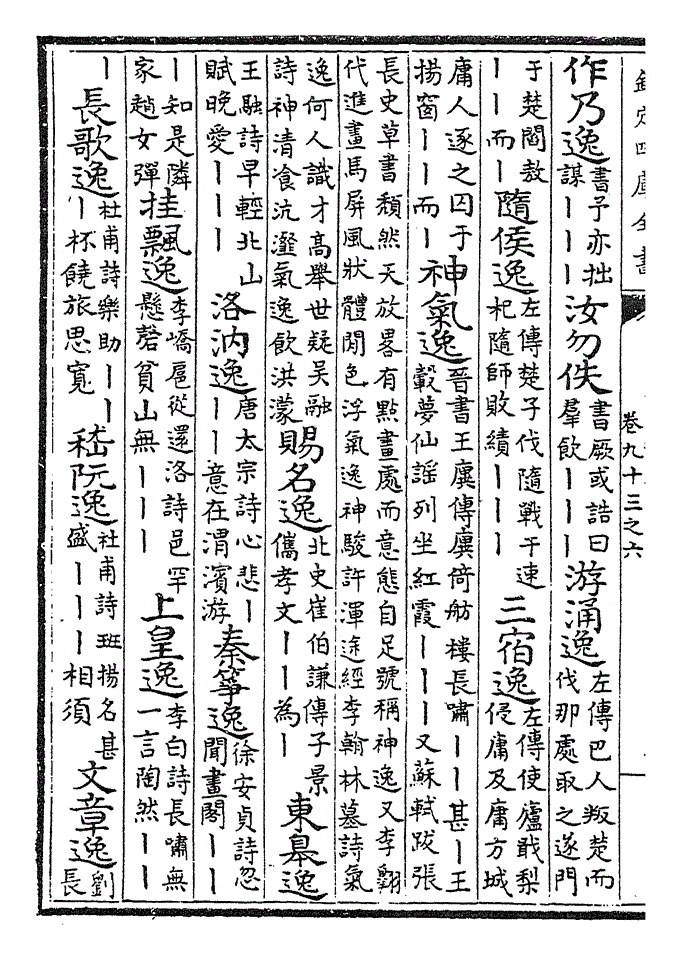 欽定四庫全書 卷九十三之六
作乃逸書予亦拙謀丨丨丨汝勿佚書厥或誥曰羣飲丨丨丨游涌逸左傳巴人叛楚而伐那處取之遂門
于楚閻敖丨丨而丨隨侯逸左傳楚子伐隨戰于速杞隨師敗績丨丨丨三宿逸左傳使廬戢梨侵庸及庸方城
庸人逐之囚于揚窗丨丨而丨神氣逸晉書王廙傳廙倚舫樓長嘯丨丨甚丨王轂夢仙謡列坐紅霞丨丨丨又蘇軾跋張
長史草書頽然天放畧有點畫處而意態自足號稱神逸又李翺代進畫馬屏風狀體閒色浮氣逸神駿許渾途經李翰林墓詩氣
逸何人識才高舉世疑吴融詩神清飡沆瀣氣逸飲洪濛賜名逸北史崔伯謙傳子景儁孝文丨丨為丨東臯逸
王融詩早輕北山賦晚愛丨丨丨洛汭逸唐太宗詩心悲丨丨丨意在渭濱游秦箏逸徐安貞詩忽聞畫閣丨丨
丨知是隣家趙女彈挂瓢逸李嶠扈從還洛詩邑罕懸磬貧山無丨丨丨上皇逸李白詩長嘯無一言陶然丨丨
丨長歌逸杜甫詩樂助丨丨丨杯饒旅思寬嵇阮逸杜甫詩班揚名甚盛丨丨丨相須文章逸劉長